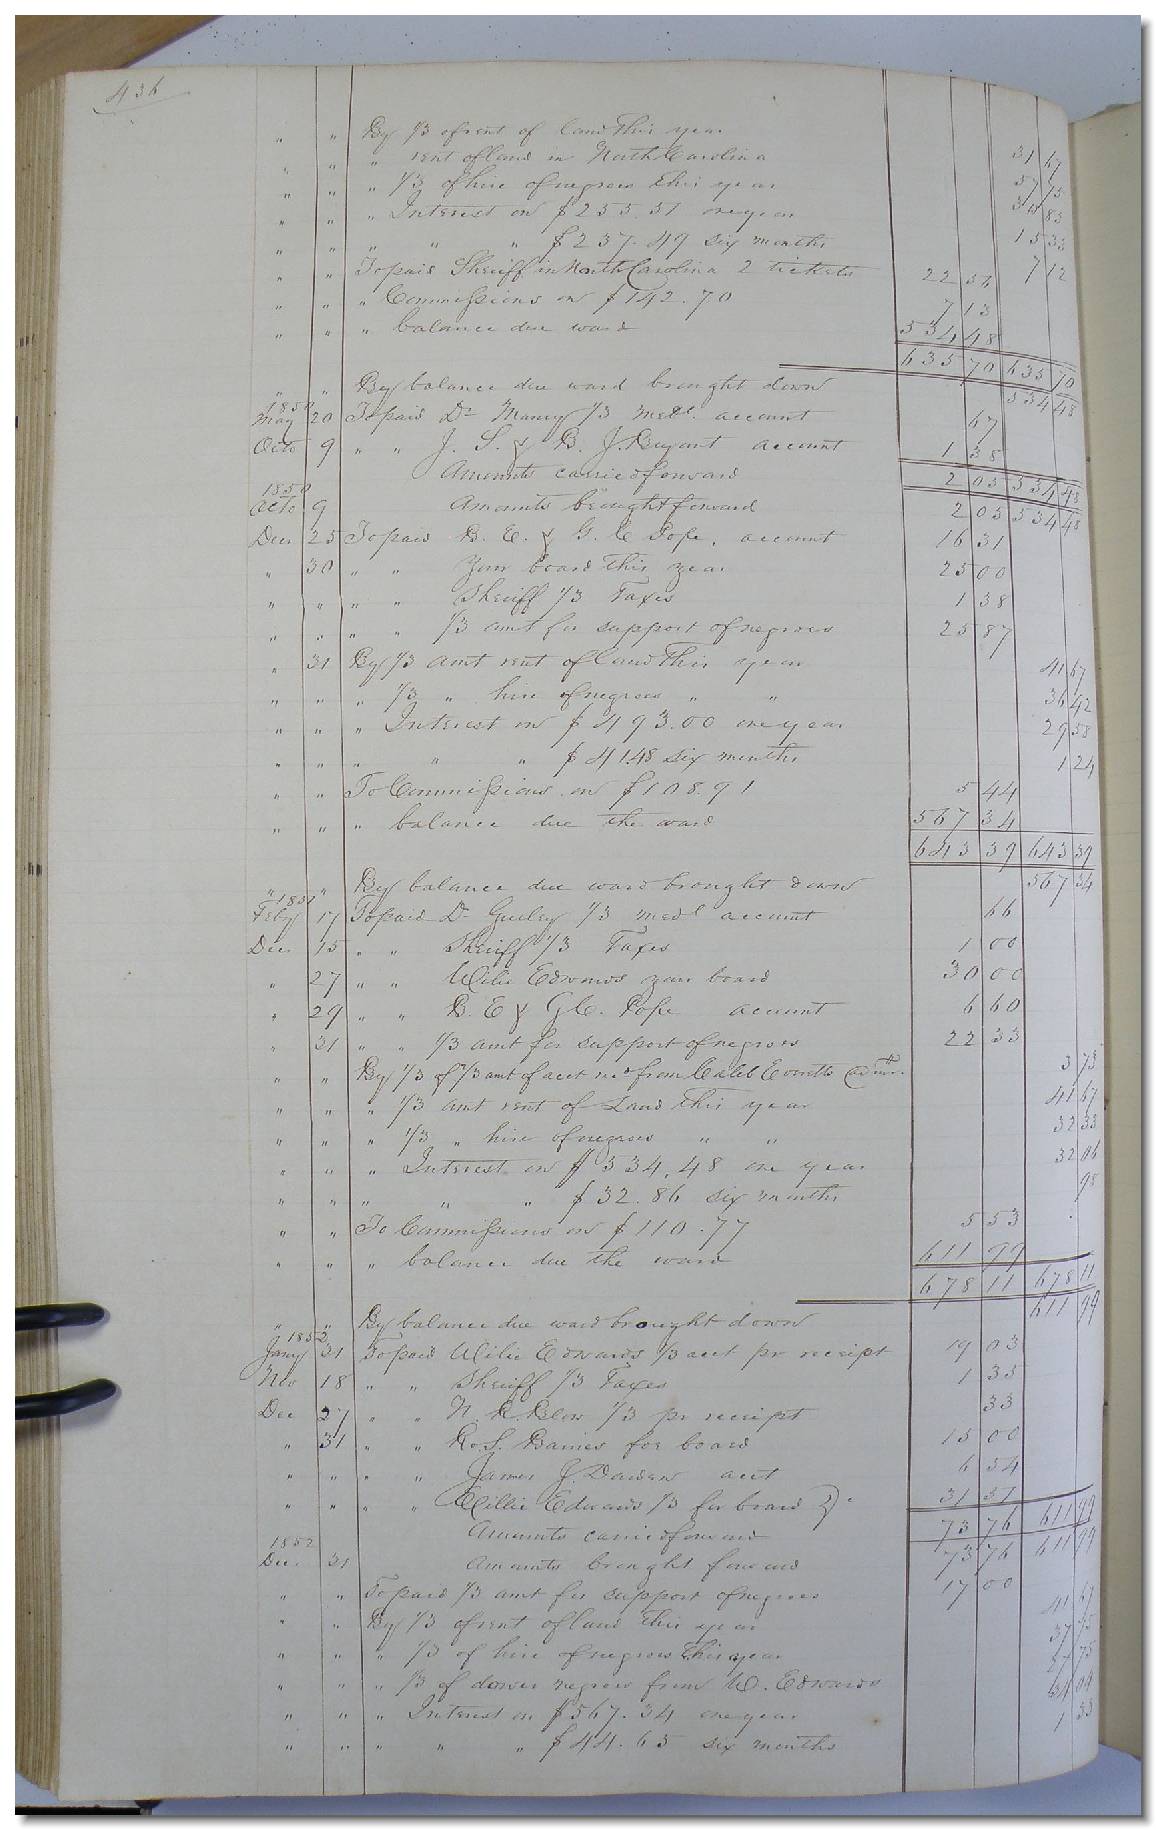 436
" " By 1/3 of rent of land this year 31 67
" " " rent of land in North Carolina 57 75
" " " 1/3 of hire of negroes this year 30 83
" " " Interest on $255.51 one year 15 33
" " " " " $237.49 six months 7 12
" " To paid Sheriff in North Carolina 2 tickets 22 56
" " " Commissions on $142.70 7 13
" " " balance due ward 534 48
635 70 635 70
" " By balance due ward brought down 534 48
1850
May 20 To paid Dr Maney 1/3 medl. account 67
Octo 9 " " J. S. & B. J. Bryant account 1 38
Amounts carried forward 2 05 534 48
1850
Octo 9 Amounts brought forward 2 05 534 48
Dec 25 To paid B. E. & G. C Pope, account 16 31
" 30 " " Your board this year 25 00
" " " " Sheriff 1/3 Taxes 1 38
" " " " 1/3 amt for support of negroes 25 87
" 31 By 1/3 amt rent of land this year 41 67
" " " 1/3 " hire of negroes " " 36 42
" " " Interest on $493.00 one year 29 58
" " " " " $41.48 six months 1 24
" " To Commissions on $108.91 5 44
" " " balance due the ward 567 34
643 39 643 39
" " By balance due ward brought down 567 34
1851
Feby 17 To paid Dr Gurley 1/3 medl account 66
Dec. 15 " " Sheriff 1/3 Taxes 1 00
" 27 " " Wilie Edwards your board 30 00
" 29 " " B. E & G C. Pope account 6 60
" 31 " " 1/3 amt for support of negroes 22 33
" " By 1/3 of 1/3 amt of acct recd from Caleb Everetts admr. 3 73
" " " 1/3 amt rent of Land this year 41 67
" " " 1/3 " hire of negroes " " 32 33
" " " Interest on $534.48 one year 32 06
" " " " " $32.86 six months 98
" " To Commissions on $110.77 5 53
" " " balance due the ward 611 99
678 11 678 11
" " By balance due ward brought down 611 99
1852
Jany 31 To paid Wilie Edwards 1/3 acct pr receipt 19 03
Nov 18 " " Sheriff 1/3 Taxes 1 35
Dec 27 " " N. R. Blow 1/3 pr receipt 33
" 31 " " Ro. S. Barnes for board 15 00
" " " " James J. Darden acct 6 54
" " " " Willie Edwards 1/3 for board 31 51
Amounts carried forward 73 76 611 99
1852
Dec. 31 Amounts brought forward 73 76 611 99
" " To paid 1/3 amt for support of negroes 17 00
" " By 1/3 of rent of land this year 41 67
" " " 1/3 of hire of negroes this year 37
" " " 1/3 of dower negroes from W. Edwards 75
" " " Interest on $567.34 one year 34 04
" " " " " $44.65 six months 1 33